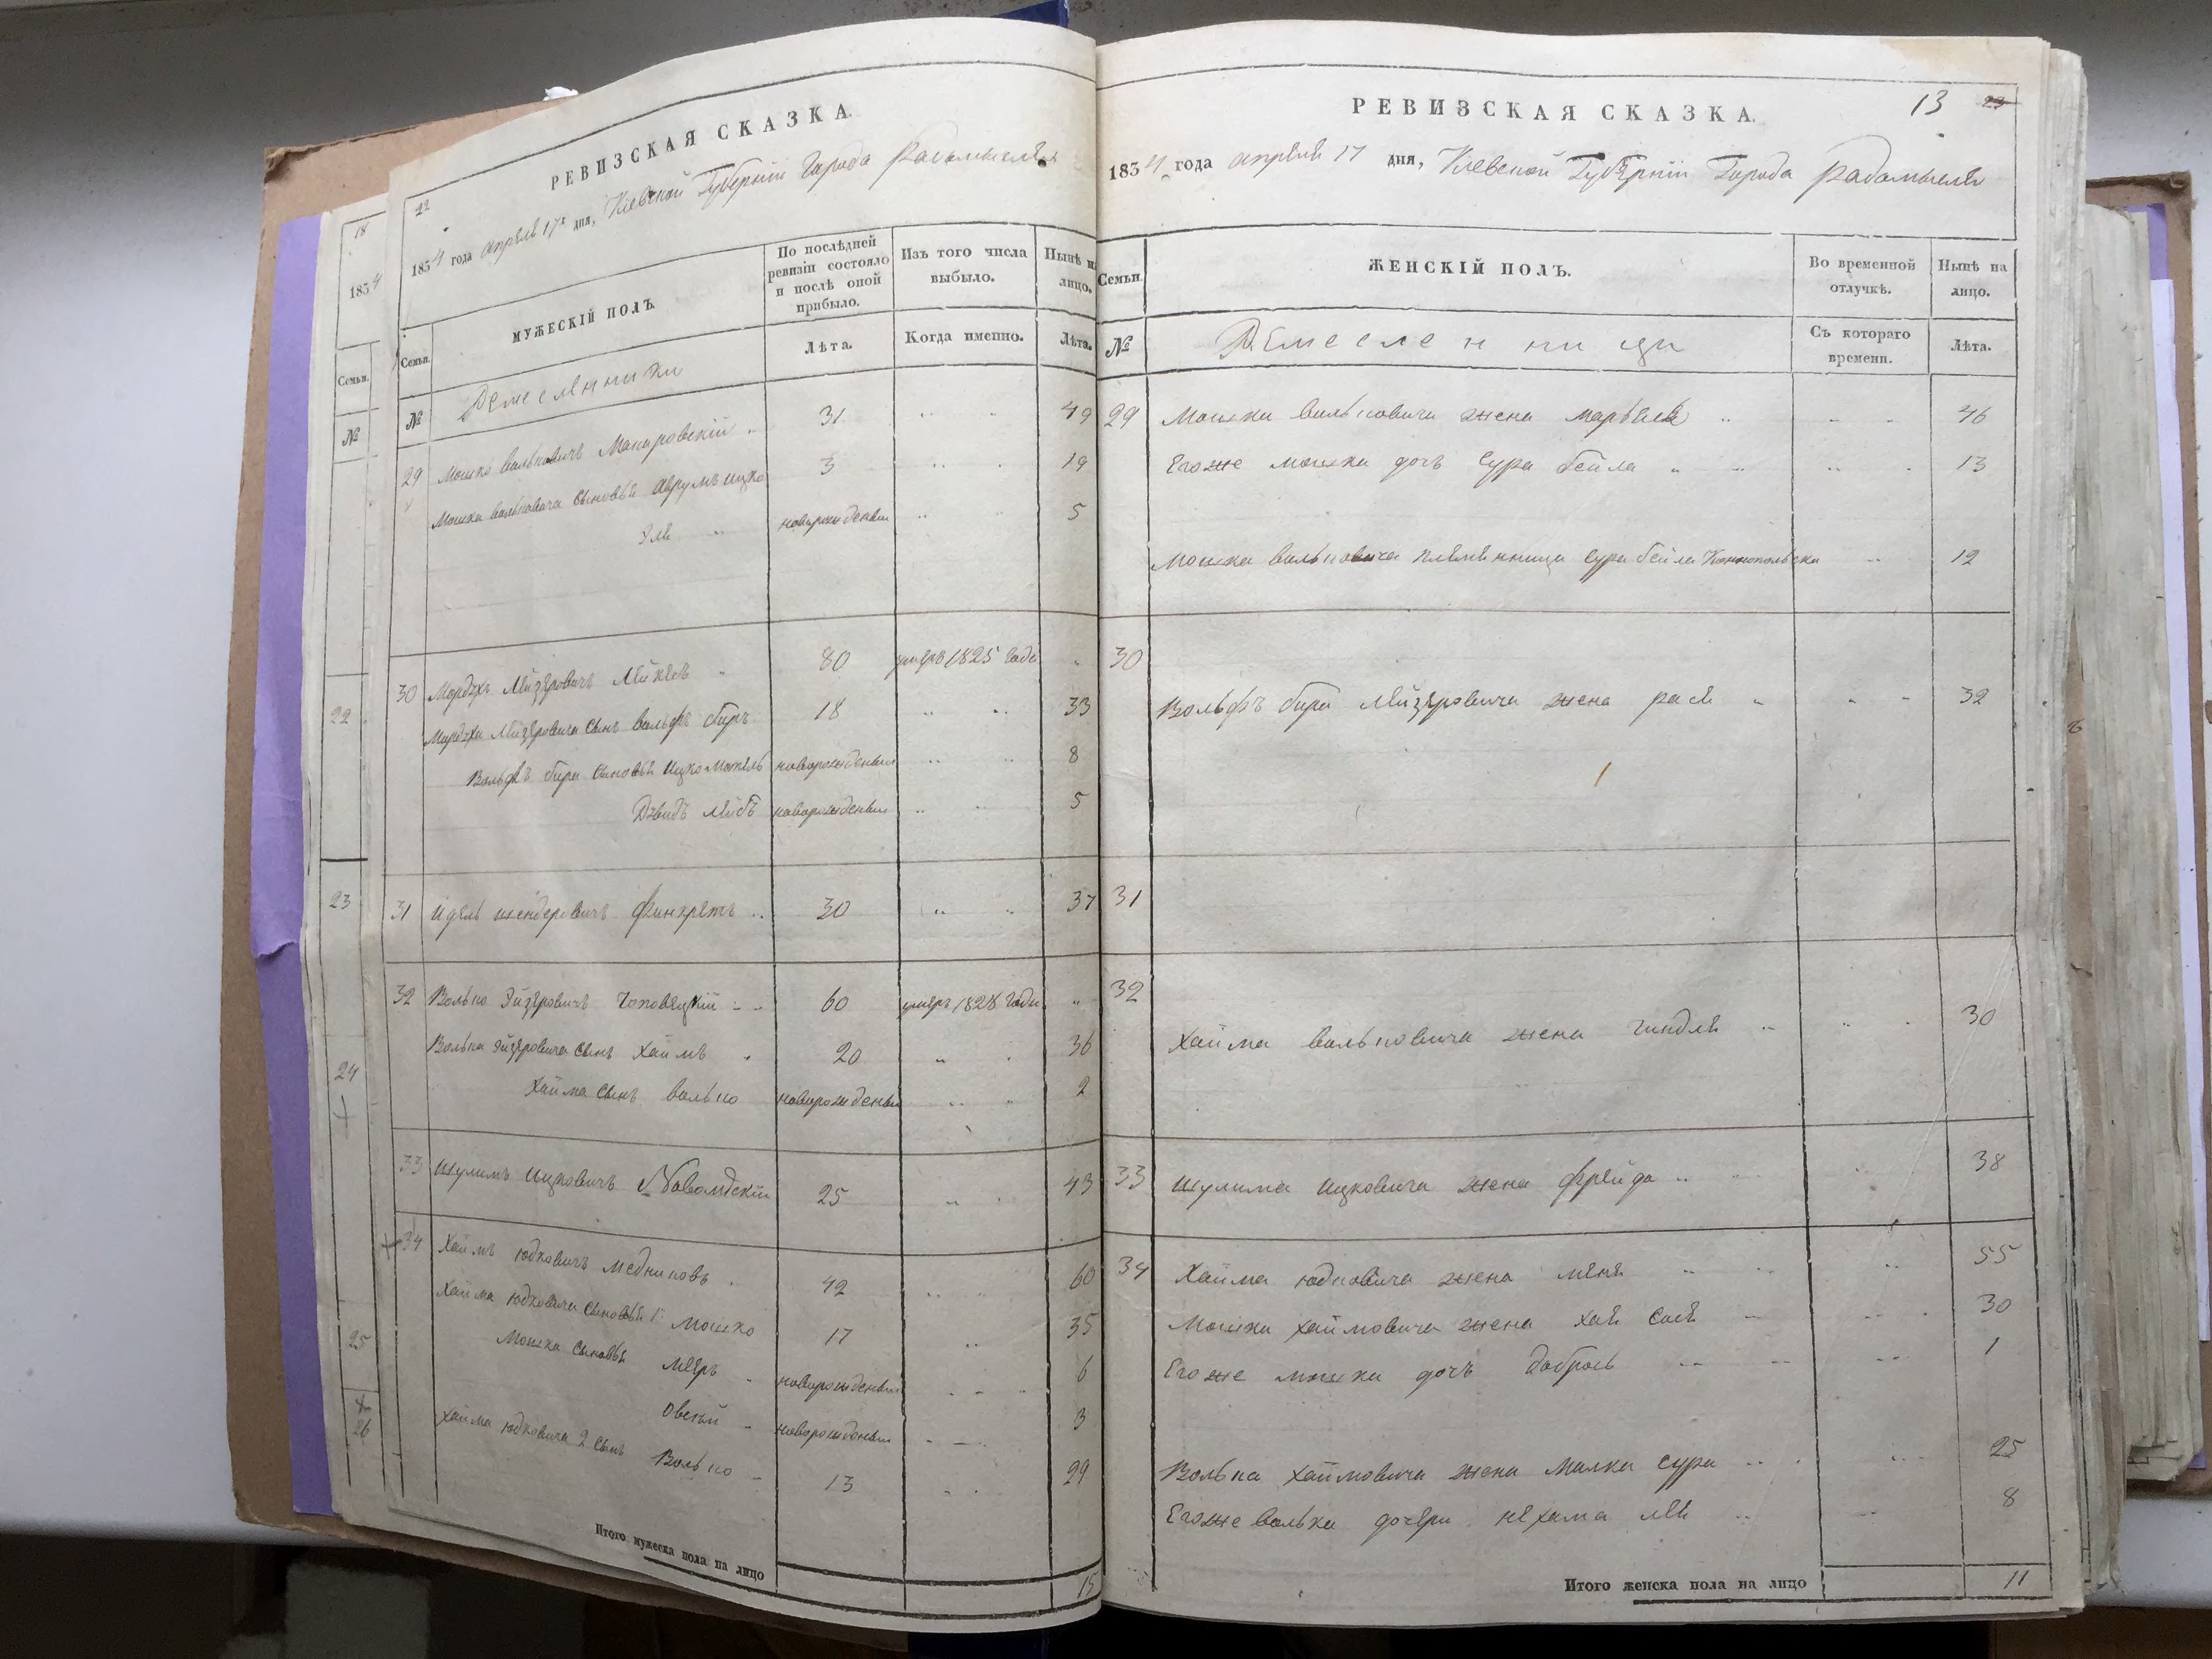 18
1834
Семьи.
№
22
23
24
25
26
22
РЕВИЗСКАЯ СКАЗКА.
1834 года апреля 17 дня, Киевской Губерніи Города Радомысля
Семьи.
МУЖЕСКІЙ ПОЛЪ.
По послѣдней ревизіи состояло и послѣ оной прибыло.
Изъ того числа выбыло.
Нынѣ на лицо.
№
Лѣта.
Когда именно.
Лѣта.
29 Мошко Вольковичъ Макаровскій 31 49
Мошка Вольковича сыновья Аврумъ Ицко 3 19
Эля новорожденый 5
30 Мордхъ Лейзеровичъ 80 умеръ 1825 года
Мордха Лейзеровича сынъ Вольфъ Беръ 18 33
Вольфъ Бера сыновья Ицко Мотель новорожденый 8
Давидъ Лейбъ новорожденый 5
31 Идель Шендеровичъ 30 37
32 Волько Эйзеровичъ Чоповецкій 60 умеръ 1828 года
Волька Эйзеровича сынъ Хаимъ 20 36
Хаима сынъ Волько новорожденый 2
33 Шулимъ Ицковичъ 25 43
34 Хаимъ Юдковичъ Медниковъ 42 60
Хаима Юдковича сыновья 1 Мошко 17 35
Мошка сыновья Меѣръ новорожденый 6
Овсѣй новорожденый 3
Хаима Юдковича 2 сынъ Волько 13 29
Итого мужеска пола на лицо 15
13 23
РЕВИЗСКАЯ СКАЗКА.
1834 года апреля 17 дня, Киевской Губерніи Города Радомысля
Семьи.
ЖЕНСКІЙ ПОЛЪ.
Во временной отлучкѣ.
Нынѣ на лицо.
№
Съ котораго времени.
Лѣта.
29 Мошка Вольковича жена 46
Егоже Мошка дочь Сура Бейла 13
Мошка Вольковича племянница Сура Бейла 12
30
Вольфъ Бера Лейзеровича жена Рася 32
31
32
Хаима Вольковича жена Гиндля 30
33 Шулима Ицковича жена Фрейда 38
34 Хаима Юдковича жена 55
Мошка Хаимовича жена Хая Сося 30
Егоже Мошка дочь 1
Волька Хаимовича жена Малка Сура 25
Егоже Волька дочери Нехама Лея 8
Итого женска пола на лицо 11